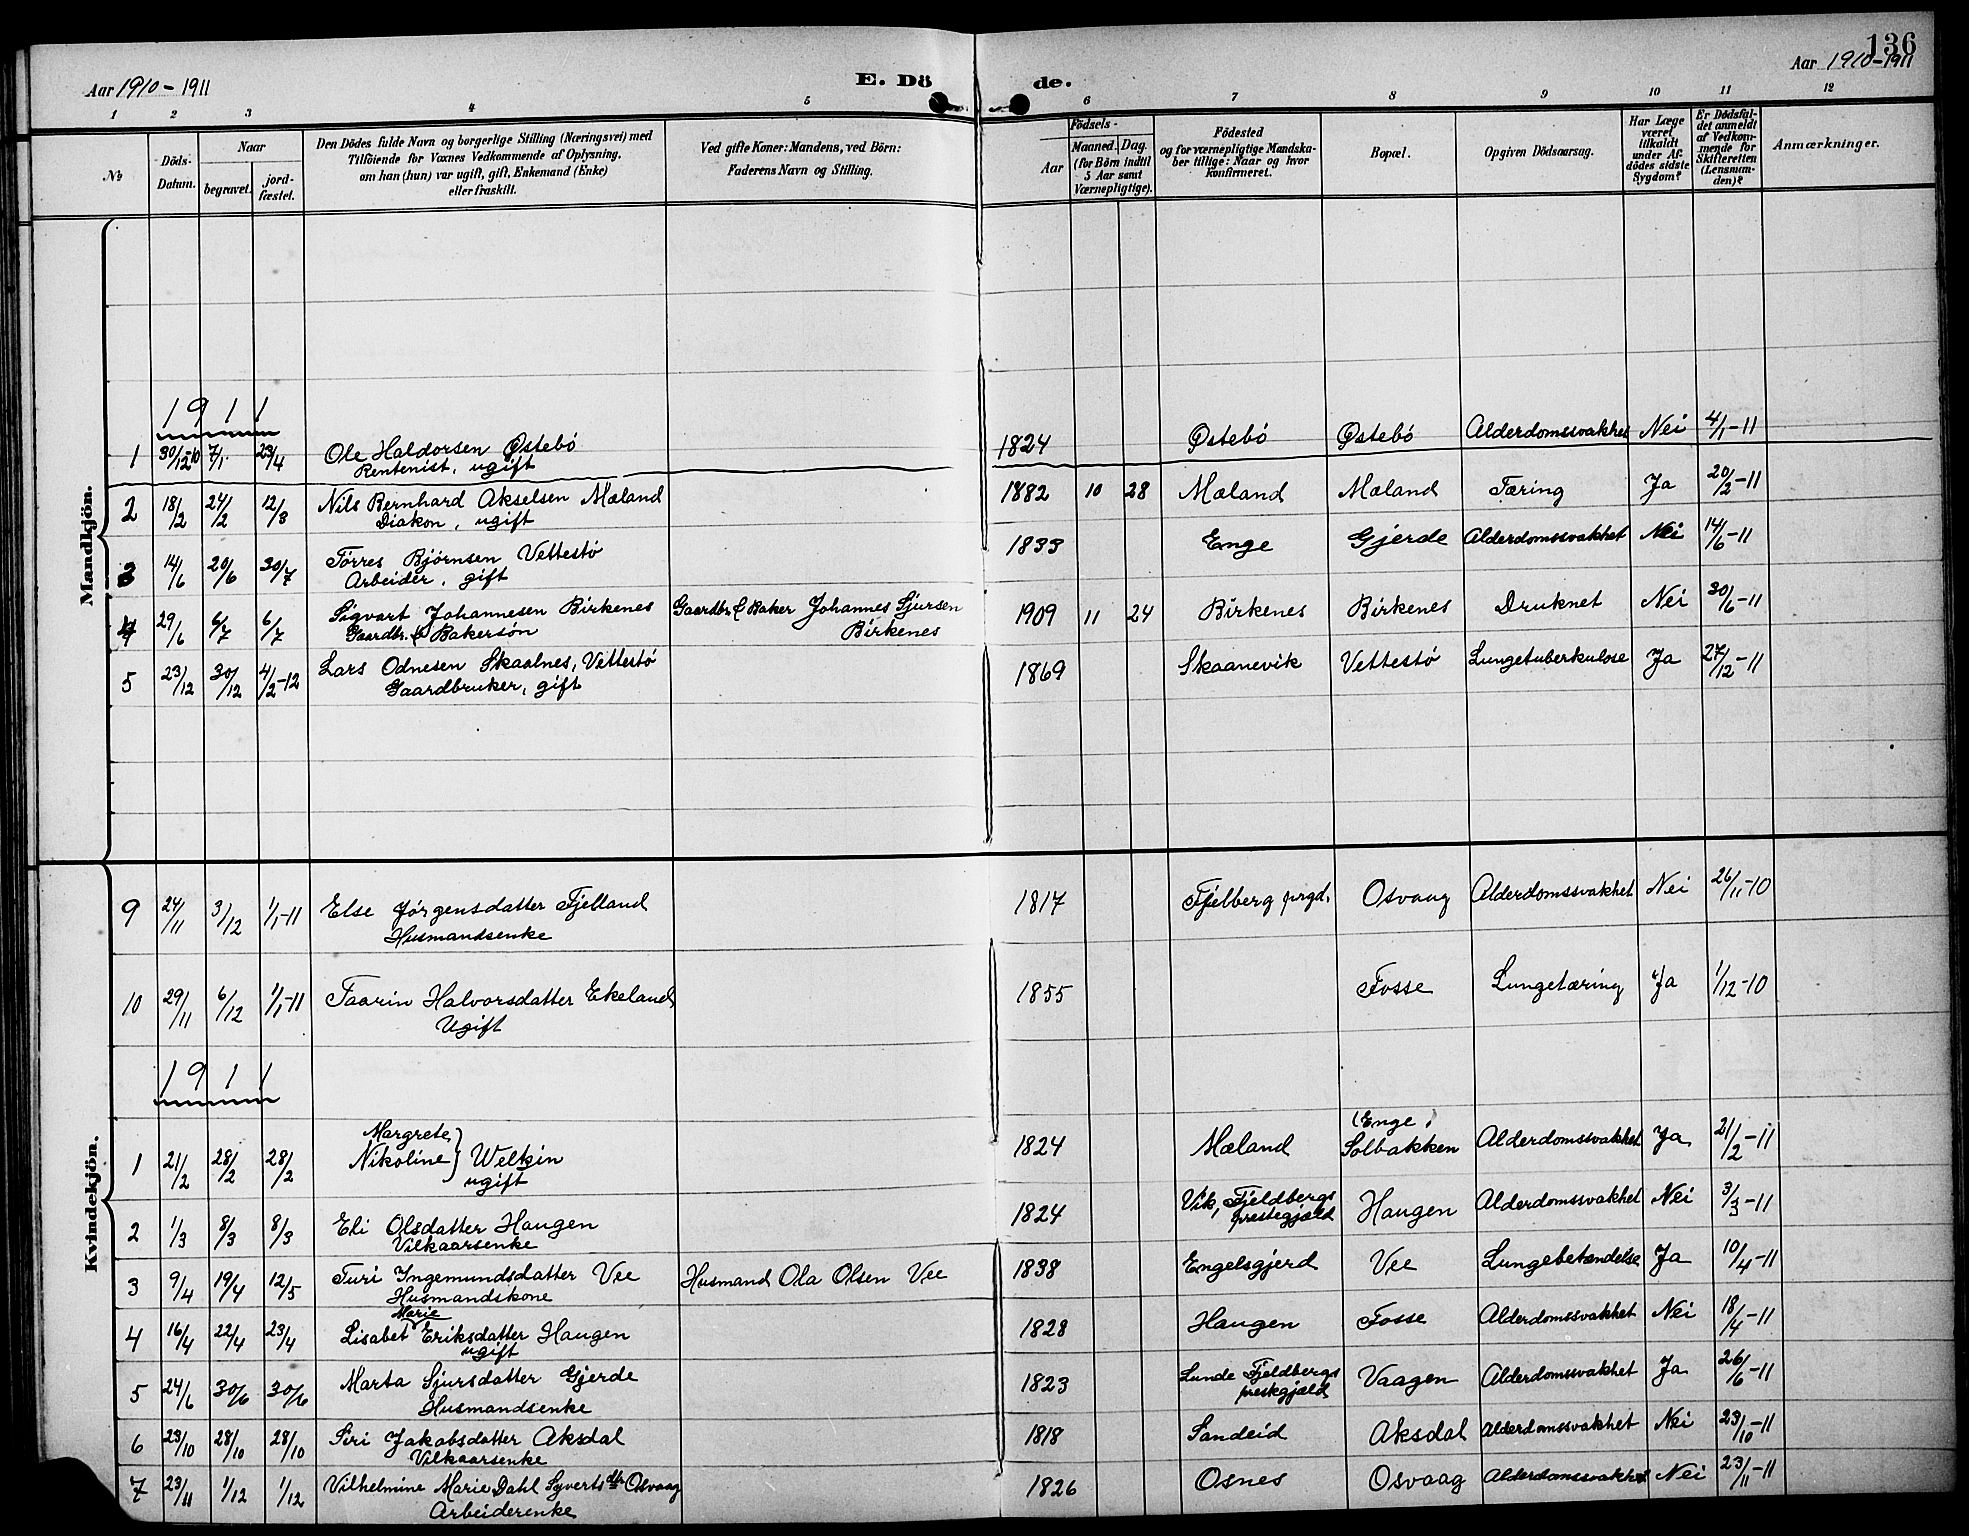 136
Aar 1910-1911
E. Dö de.
Aar 1910-1911
1 2 3 4 5 6 7 8 9 10 11 12
No
Döds-Datum.
Naar
begravet.
jord-fæstet.
Den Dödes fulde Navn og borgerlige Stilling (Næringsvei) med
Tilföiende for Voxnes Vedkommende af Oplysning,
om han (hun) var ugift, gift, Enkemand (Enke)
eller fraskilt.
Ved gifte Koner: Mandens, ved Börn:
Faderens Navn og Stilling.
Födsels-
Aar
Maaned. Dag.
(for Börn indtil
5 Aar samt
Værnepligtige).
Födested
og for værnepligtige Mandska-
ber tillige: Naar og hvor
Konfirmeret.
Bopæl.
Opgiven Dödsaarsag.
Har Læge
været
tilkaldt
under Af-
dödes sidste
Sygdom?
Er Dödsfal-
det anmeldt
af Vedkom-
mende for
Skifteretten
(Lensman-
den)?
Anmærkninger.
Mandkjön.
1911
1 30/12-10 7/1 23/4 Ole Haldorsen Østebö 1824 Østebö Østebö Alderdomssvakhet Nei 4/1-11
Rentenist, ugift
2 18/2 24/2 12/3 Nils Bernhard Akselsen Mæland 1882 10 28 Mæland Mæland Tæring Ja 20/2-11
Diakon, ugift
3 14/6 20/6 30/7 Tørres Bjørnsen Vettestø 1833 Enge Gjerde Alderdomssvakhet Nei 14/6-11
Arbeider, gift
4 29/6 6/7 6/7 Sigvart Johannesen Birkenes Gaardbr. & Baker Johannes Sjursen 1909 11 24 Birkenes Birkenes Druknet Nei 30/6-11
Gaardbr. & Bakersøn Birkenes
5 23/12 30/12 4/2-12 Lars Odnesen Skaalnes, Vettestø 1869 Skaanevik Vettestø Lungetuberkulose Ja 27/12-11
Gaardbruker, gift
Kvindekjön.
9 24/11 3/12 1/1-11 Else Jørgensdatter Fjelland 1817 Fjelberg prgd. Osvaag Alderdomssvakhet Nei 26/11-10
Husmandsenke
10 29/11 6/12 1/1-11 Taarin Halvorsdatter Ekeland 1855 Fosse Lungetæring Ja 1/12-10
Ugift
1911
Margrete (Enge)
1 21/2 28/2 28/2 Nikoline } Welkin 1824 Mæland Solbakken Alderdomssvakhet Ja 21/2-11
ugift
2 1/3 8/3 8/3 Eli Olsdatter Haugen 1824 Vik, Fjeldbergs prestegjæld Haugen Alderdomssvakhet Nei 3/3-11
Vilkaarsenke
3 9/4 19/4 12/5 Turi Ingemundsdatter Vee Husmand Ola Olsen Vee 1838 Engelsgjerd Vee Lungebetændelse Ja 10/4-11
Husmandskone
Marie
4 16/4 22/4 23/4 Lisabet Eriksdatter Haugen 1828 Haugen Fosse Alderdomssvakhet Nei 18/4-11
ugift
5 24/6 30/6 30/6 Marta Sjursdatter Gjerde 1823 Lunde Fjeldbergs preskgjæld Vaagen Alderdomssvakhet Ja 26/6-11
Husmandsenke
6 23/10 28/10 28/10 Siri Jakobsdatter Aksdal 1818 Sandeid Aksdal Alderdomssvakhet Nei 23/10-11
Vilkaarsenke
7 23/11 1/12 1/12 Vilhelmine Marie Dahl Syverts dtr Osvaag 1826 Osnes Osvaag Alderdomssvakhet Nei 23/11-11
Arbeiderenke